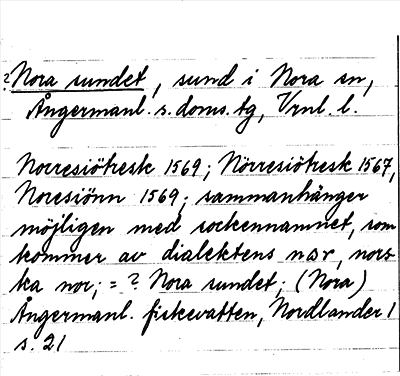 ? Nora sundet, sund i Nora sn,
Ångermanl. s. doms. tg, Vrnl. l.
Norresiötresk 1569; Nörresiötresk 1567,
Noresiönn 1569; sammanhänger
möjligen med sockennamnet, som
kommer av dialektens nor, nors-
ka nor; = ? Nora sundet; (Nora)
Ångermanl. fiskevatten, Nordlander 1
s. 21